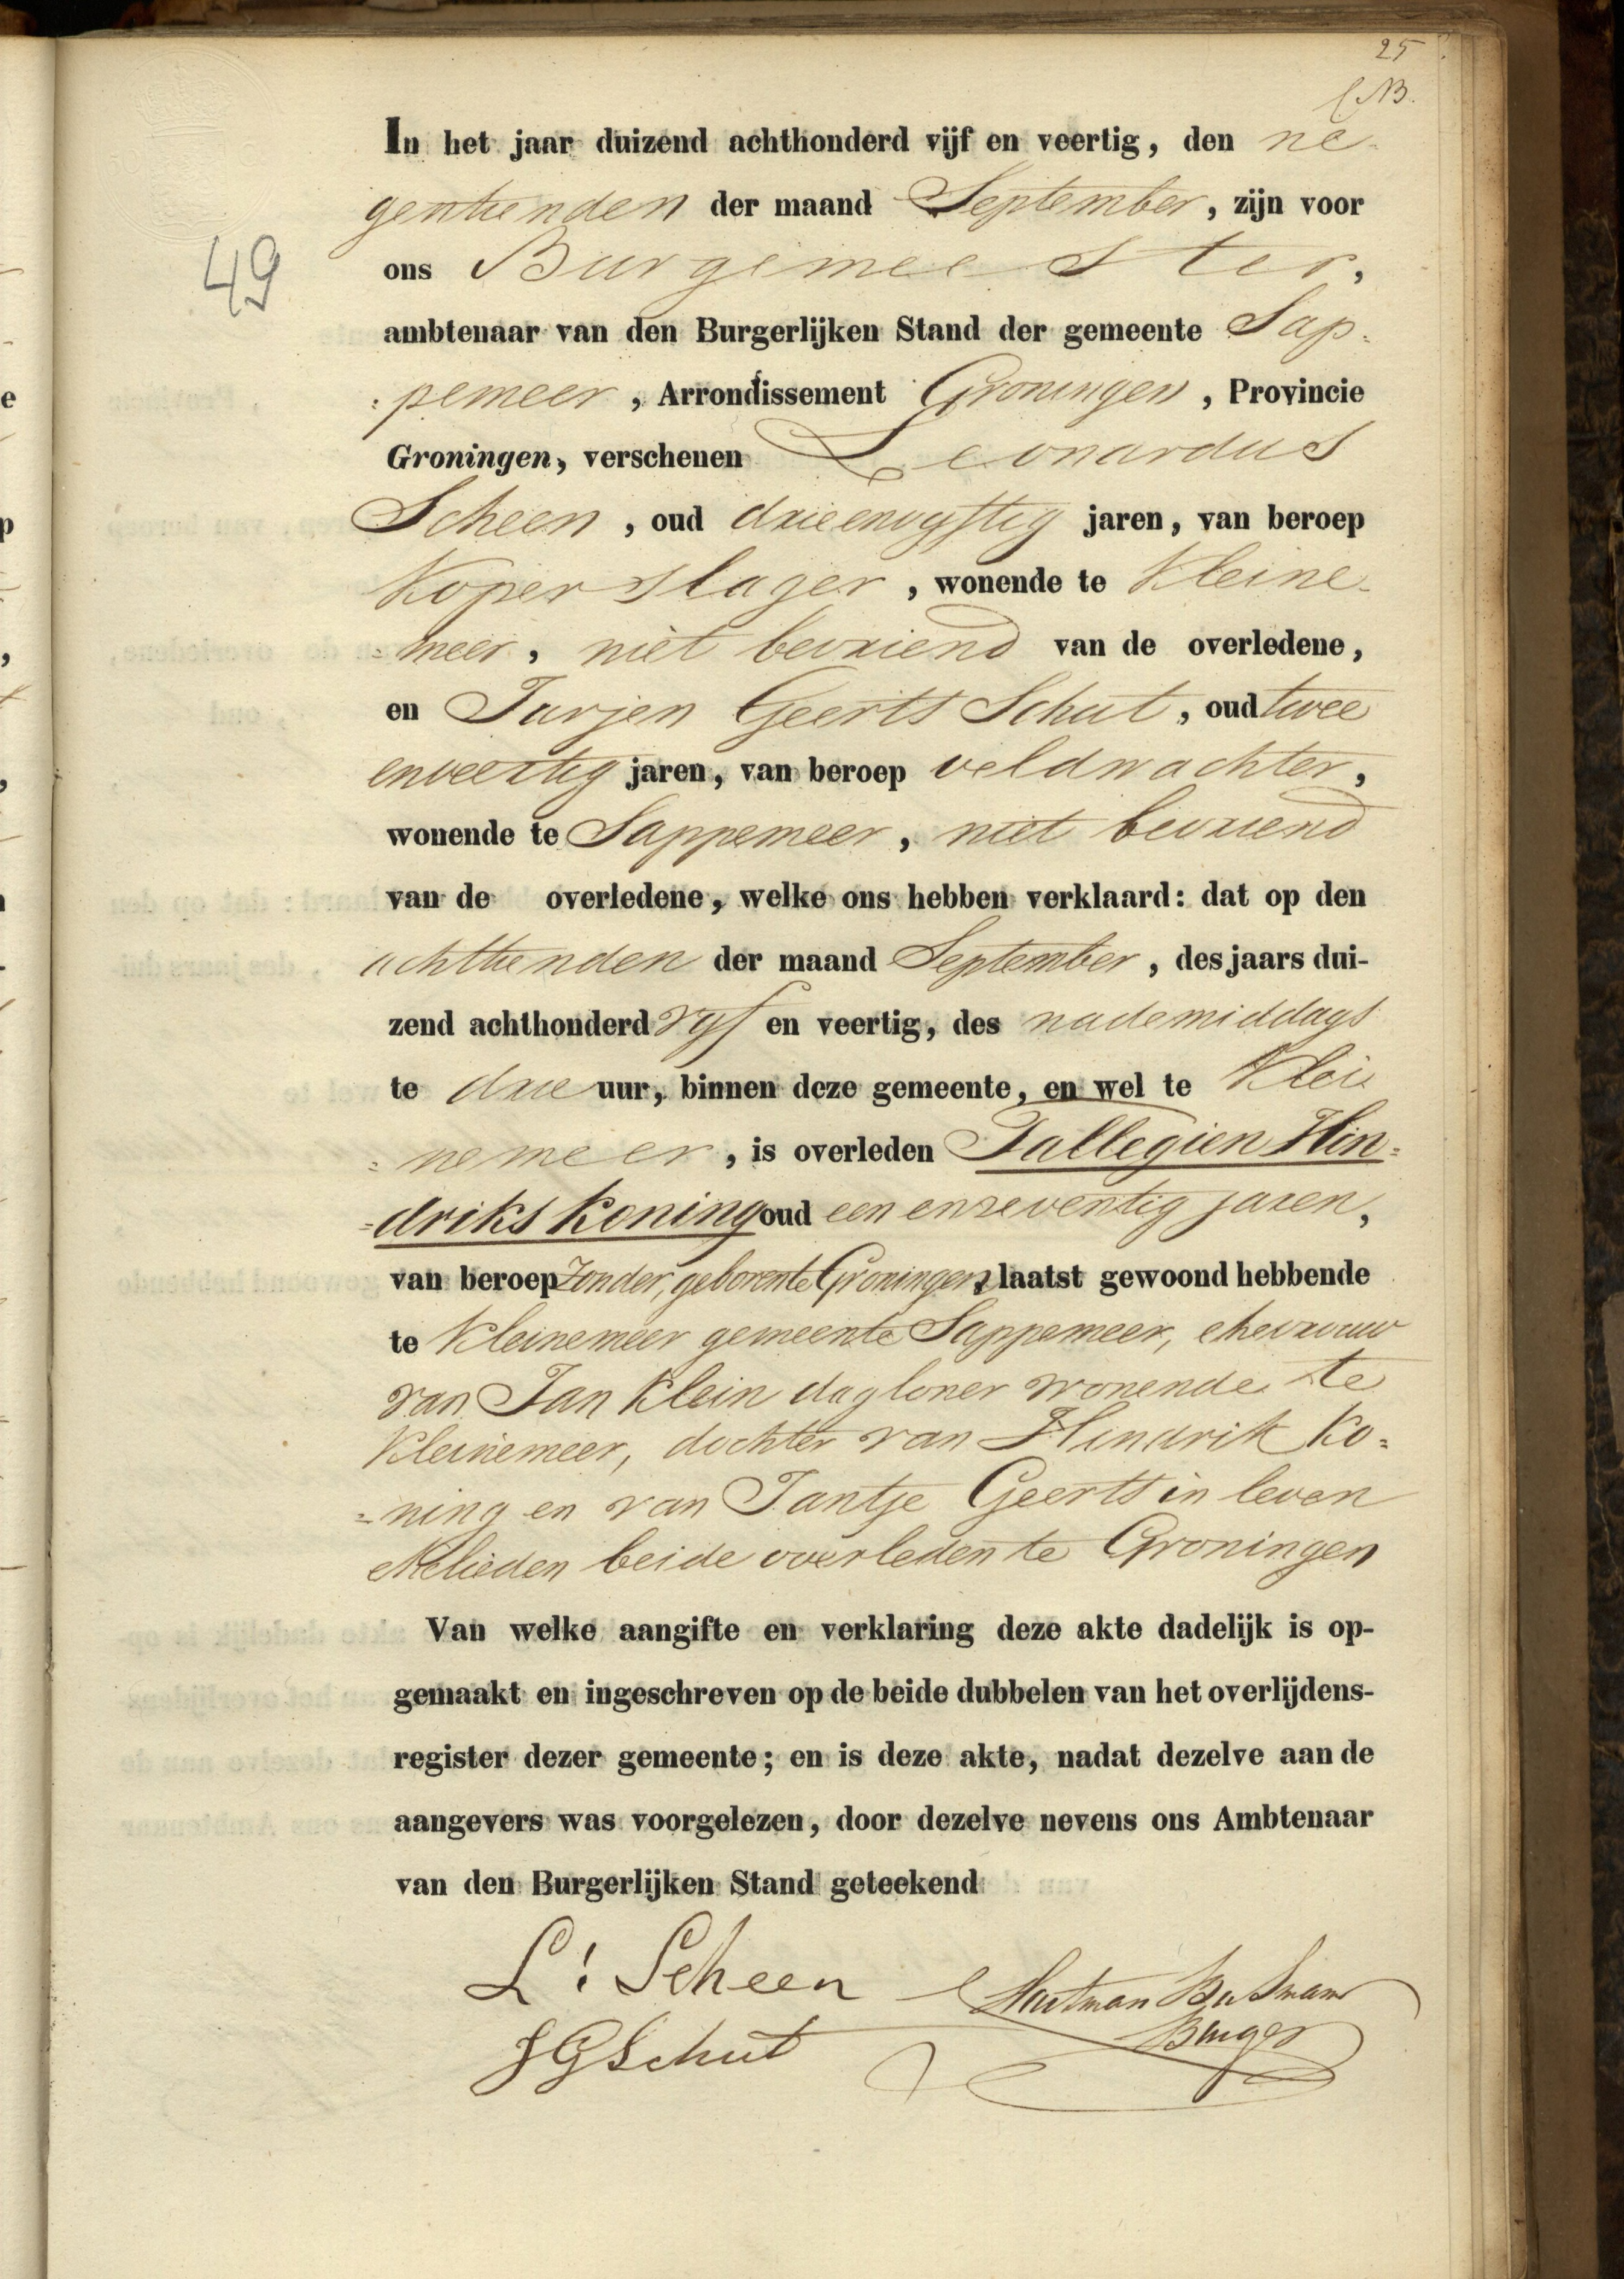 25
In het jaar duizend achthonderd vijf en veertig, den ne-
gentienden der maand September, zijn voor
ons Burgemeester,
49
ambtenaar van den Burgerlijken Stand der gemeente Sap-
-pemeer, Arrondissement Groningen, Provincie
Groningen, verschenen Leonardus
Scheen, oud drieenvyftig jaren, van beroep
Koperslager, wonende te Kleine-
=meer, niet bevriend van de overledene,
en Jurjen Geerts Schut, oud twee
enveertig jaren, van beroep veldwachter,
wonende te Sappemeer, niet bevriend
van de overledene, welke ons hebben verklaard: dat op den
achttienden der maand September, des jaars dui-
zend achthonderd vyf en veertig, des nademiddags
te drie uur, binnen deze gemeente, en wel te Klei
=nemeer, is overleden Tallegien Hin=
=driks Koning oud een enzeventig jaren,
van beroep Zonder, geboren te Groningen, laatst gewoond hebbende
te Kleinemeer gemeente Sappemeer, ehevrouw
van Jan Klein dagloner wonende te
Kleinemeer, dochter van Hindrik Ko=
=ning en van Jantje Geerts in leven
Ehelieden beide overleden te Groningen
Van welke aangifte en verklaring deze akte dadelijk is op-
gemaakt en ingeschreven op de beide dubbelen van het overlijdens-
register dezer gemeente; en is deze akte, nadat dezelve aan de
aangevers was voorgelezen, door dezelve nevens ons Ambtenaar
van den Burgerlijken Stand geteekend
L: Scheen
JGSchut